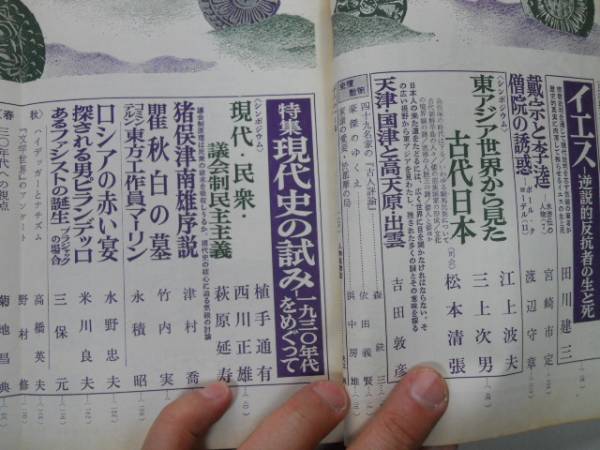 イエス 逆説的反抗者の生と死
田川建三
戴宗と李逵
水滸伝の人物(七)
宮崎市定
僧院の誘惑
ポール・クローデル(11)
渡辺守章
〈シンポジウム〉
東アジア世界から見た
古代日本
江上波夫
三上次男
(司会)松本清張
天津・国津と高天原・出雲
吉田敦彦
四十九名家の「古人評論」
森銑三
豪傑のゆくえ
依田義賢
浜中房雄
特集 現代史の試み 一九三〇年代をめぐって
〈シンポジウム〉
現代・民衆・
議会制民主主義
植手通有
西川正雄
萩原延寿
猪俣津南雄序説
津村喬
瞿秋白の墓
竹内実
コミンテルン 東方工作員マーリン
永積昭
ロシアの赤い宴
水野忠夫
探される男ピランデッロ
米川良夫
あるファシストの誕生 ブラジャックの場合
三保元
秋 ハイデッガーとナチズム
高橋英夫
『文学世界』のアンケート
野村修
春 三〇年代への視点
菊地昌典